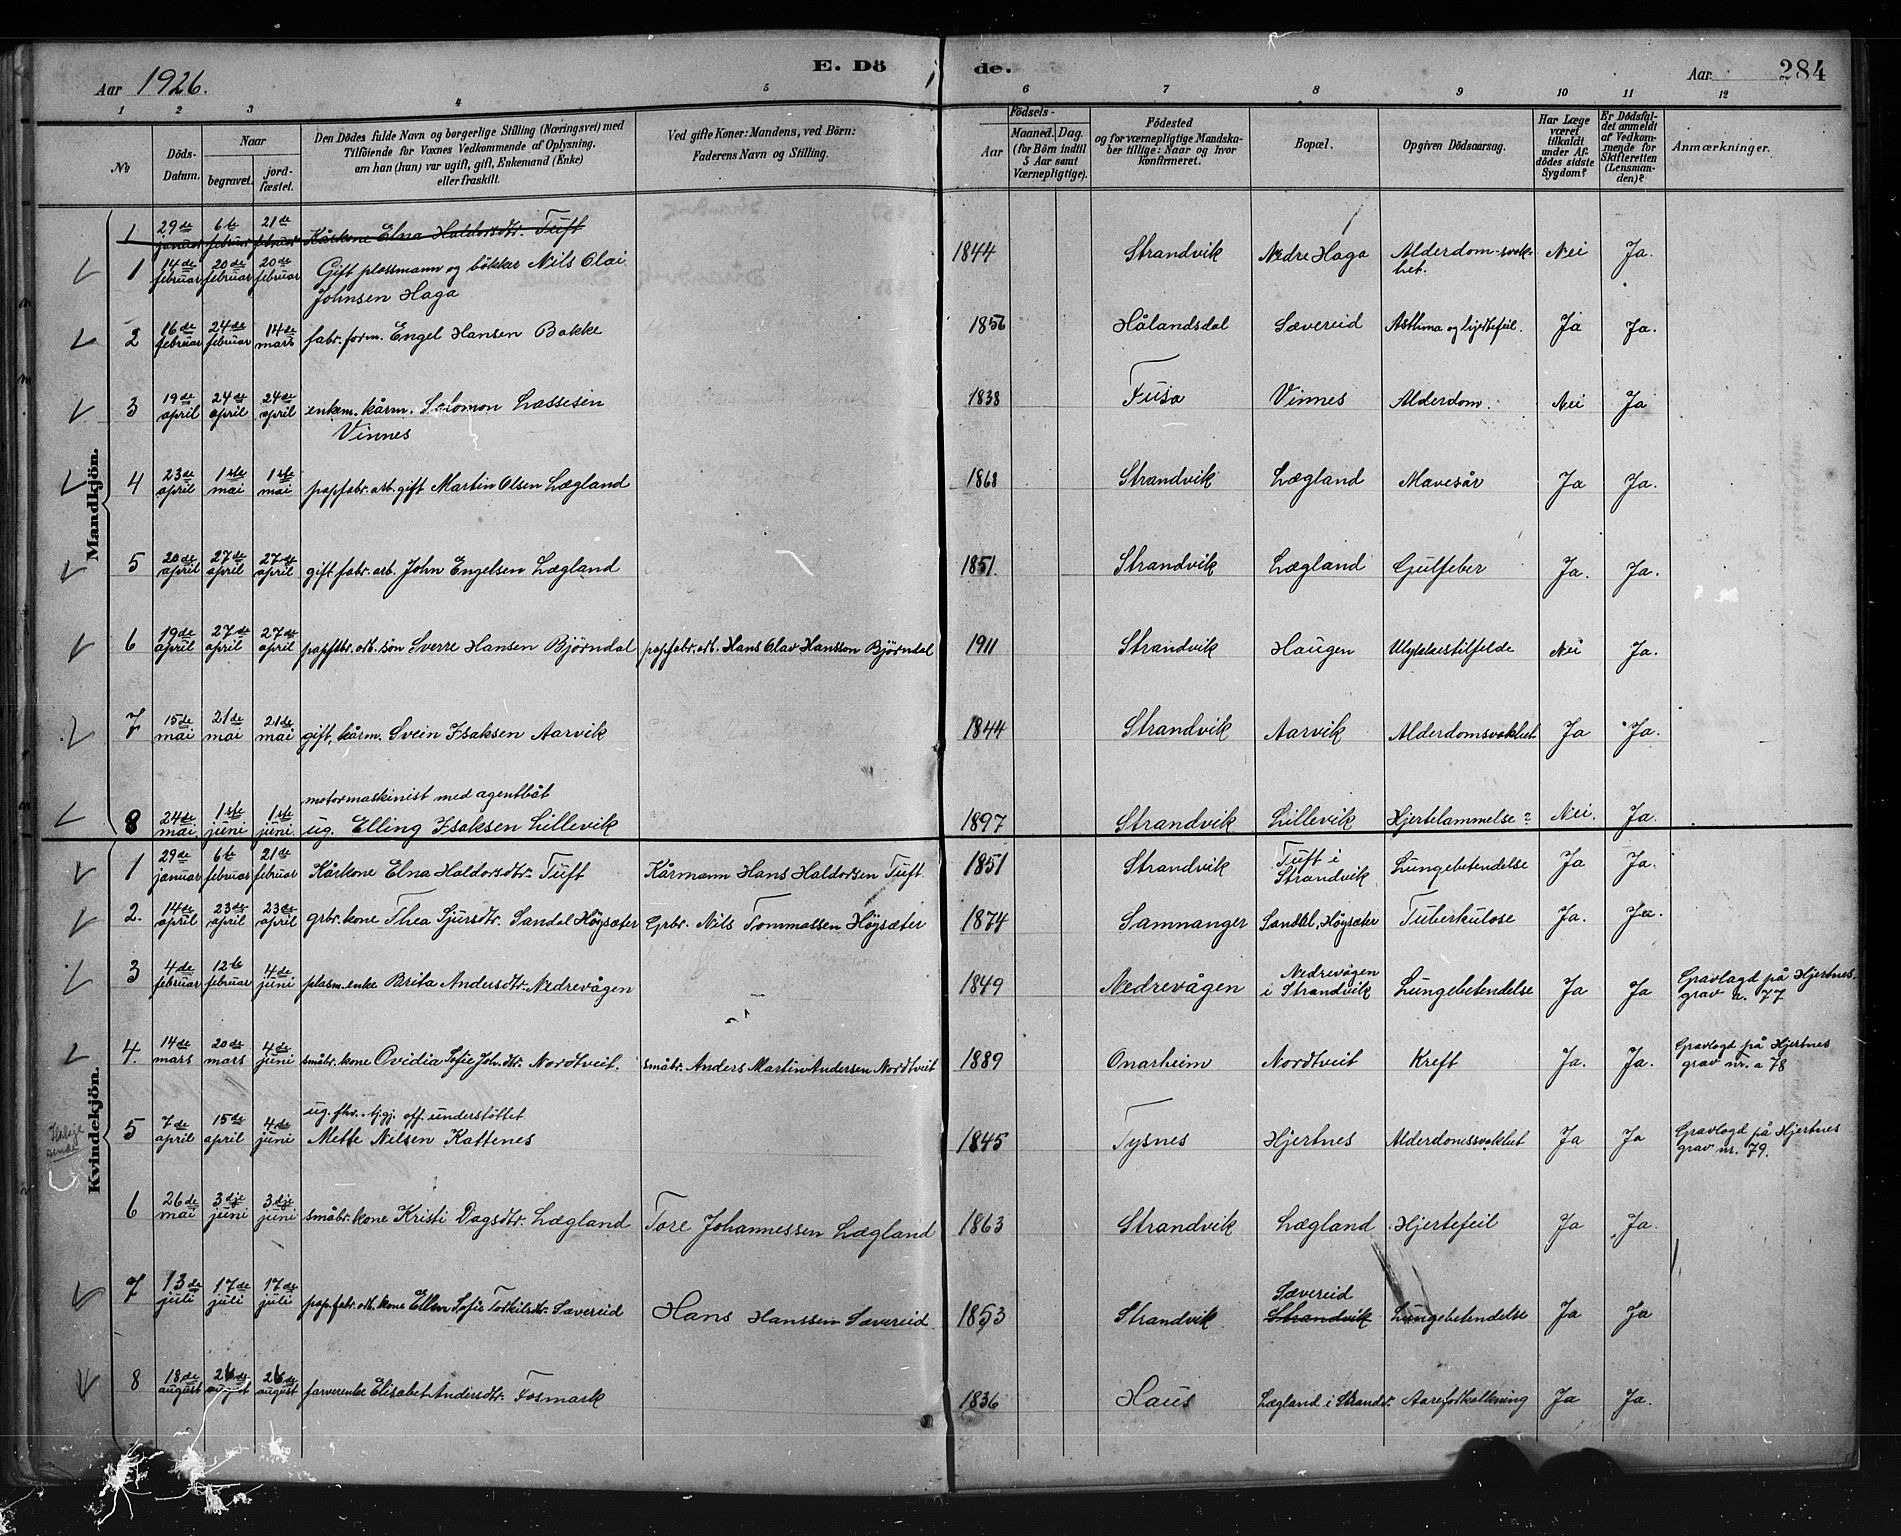 E. Dö de.
Aar 1926. Aar 284
1 2 3 4 5 6 7 8 9 10 11 12
№
Döds-Datum.
Naar
begravet.
jordfæstet.
Den Dödes fulde Navn og borgerlige Stilling (Næringsvei) med
Tilföiende for Voxnes Vedkommende af Oplysning,
om han (hun) var ugift, gift, Enkemand (Enke)
eller fraskilt.
Ved gifte Koner: Mandens, ved Börn:
Faderens Navn og Stilling.
Födsels-
Aar
Maaned. Dag.
(for Börn indtil
5 Aar samt
Værnepligtige).
Födested
og for værnepligtige Mandska-
ber tillige: Naar og hvor
konfirmeret.
Bopæl.
Opgiven Dödsaarsag.
Har Læge
været
tilkaldt
under Af-
dödes sidste
Sygdom?
Er Dödsfal-
det anmeldt
af Vedkom-
mende for
Skifteretten
(Lensman-
den)?
Anmærkninger.
Mandkjön.
1 29de januar 6te februar 21de februar Kårkone Elna Haldorsdtr. Tuft
1 14de februar 20de februar 20de februar Gift plassmann og bökkar Nils Olai
Johnsen Haga 1844 Strandvik Nedre Haga Alderdom-svak-
het. Nei Ja.
2 16de februar 24de februar 14de mars fabr. form. Engel Hansen Bakke 1856 Hålandsdal Sævereid Asthma og hjertefeil. Ja Ja.
3 19de april 24de april 24de april enkem. kårm. Salomon Lassesen
Vinnes 1838 Fusa Vinnes Alderdom. Nei Ja
4 23de april 1ste mai 1ste mai papfabr. arb. gift Martin Olsen Lægland 1868 Strandvik Lægland Mavesår Ja Ja.
5 20de april 27de april 27de april gift fabr. arb. John Engelsen Lægland 1851. Strandvik Lægland Gulfeber Ja. Ja.
6 19de april 27de april 27de april papfabr. arb. sön Sverre Hansen Björndal papfabr. arb. Hans Olav Hansson Björndal 1911 Strandvik Haugen Ulykkestilfelde Nei Ja.
7 15de mai 21de mai 21de mai gift, kårm. Svein Isaksen Aarvik 1844 Strandvik Aarvik Alderdomsvakhet Ja Ja.
8 24de mai 1ste juni 1ste juni motormaskinist med agentbåt
ug. Elling Isaksen Lillevik 1897 Strandvik Lillevik Hjertelammelse? Nei. Ja.
Kvindekjön.
1 29de januar 6te februar 21de februar Kårkone Elna Haldorsdtr. Tuft Kårmann Hans Haldorsen Tuft. 1851 Strandvik Tuft i
Strandvik Lungebetendelse Ja Ja.
2. 14de april 23de april 23de april grbr. kone Thea Sjursdtr. Sandal Höysæter Grbr. Nils Tommassen Höysæter 1874 Samnanger Sandal, Höysæter Tuberkulose Ja. Ja.
3 4de februar 12te februar 4de juni plasm. enke Brita Andersdtr. Nedrevågen 1849 Nedrevågen Nedrevågen
i Strandvik Lungebetendelse Ja Ja Gravlagd på Hjertnes
grav n. 77
4. 14de mars 20de mars 4de juni småbr. kone Ovidia Sofie Joh.dtr. Nordtveit. småbr. Anders Martin Andersen Nordtveit 1889 Onarheim Nordtveit Kreft Ja. Ja. Gravlagd på Hjertnes
grav nr. a 78
5 7de april 15de april 4de juni ug. fhv. tj.gj. off. understöttet
Mette Nilsen Kattenes 1845 Tysnes Hjertnes Alderdomssvakhet Ja Ja Gravlagd på Hjertnes
grav nr. 79.
6 26de mai 3dje juni 3dje juni småbr. kone Kristi Dagsdtr. Lægland Tore Johannessen Lægland 1863 Strandvik Lægland Hjertefeil Ja Ja.
7 13de juli 17de juli 17de juli papfabr. arb. kone Ellen Sofie Torkilsdtr. Sævereid Hans Hanssen Sævereid. 1853 Strandvik Sævereid
Strandvik Lungebetendelse Ja Ja
8 18de august 26de august 26de august farverenke Elisabet Andersdtr. Fosmark 1836 Haus Lægland i Strandv. Aareforkalkning Ja Ja.